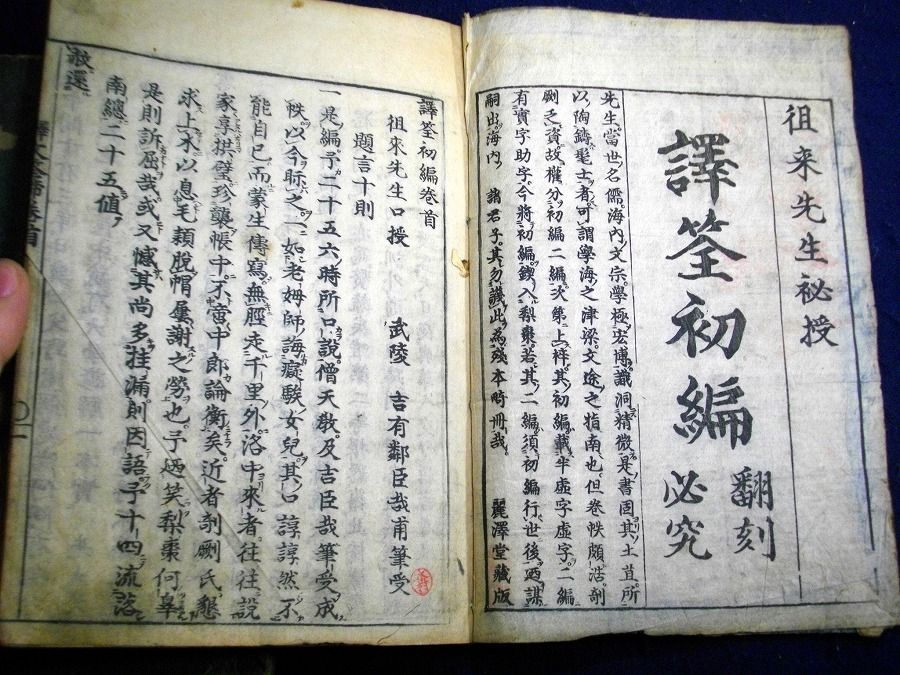 徂来先生祕授
譯筌初編
翻刻
必究
先生當世名儒海內文宗學極宏博識洞精微是書固其土苴所
以陶鑄髦士者可謂學海之津梁文途之指南也但卷帙頗浩剞
劂乏資故權分初編二編次第上梓其初編載半虛字虛字二編
有實字助字今將初編鍥入梨棗若其二編須初編行世後再謀
嗣出海內 諸君子其勿譏此為殘本時冊哉 麗澤堂藏版
譯筌初編卷首
徂來先生口授 武陵 吉有鄰臣哉甫筆受
題言十則
一是編予二十五六時所口說僧天教及吉臣哉筆受成
帙以今眎之一如老姆師誨癡騃女兒其口諄諄然不
能自已而蒙生傳寫無脛走千里外洛中來者往往說
家享拱璧珍襲帳中不啻中郎論衡矣近者剞劂氏懇
求上木以息毛穎脫帽屢謝之勞也予哂笑梨棗何辜
是則訴屈哉或又憾其尚多挂漏則因語予十四流落
南總二十五值
赦還